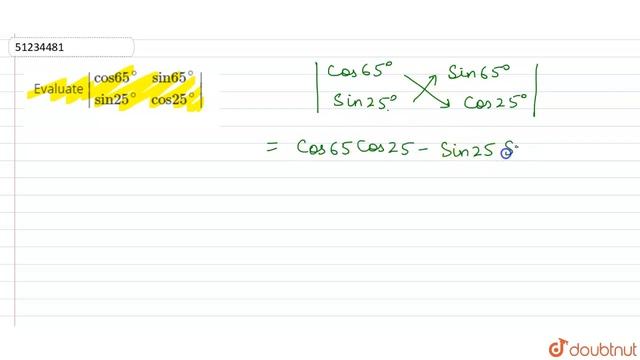 51234481
Evaluate |cos65° sin65°|
|sin25° cos25°|
|Cos65° Sin65°|
|Sin25° Cos25°|
= Cos65 Cos25 - Sin25 S
doubtnut